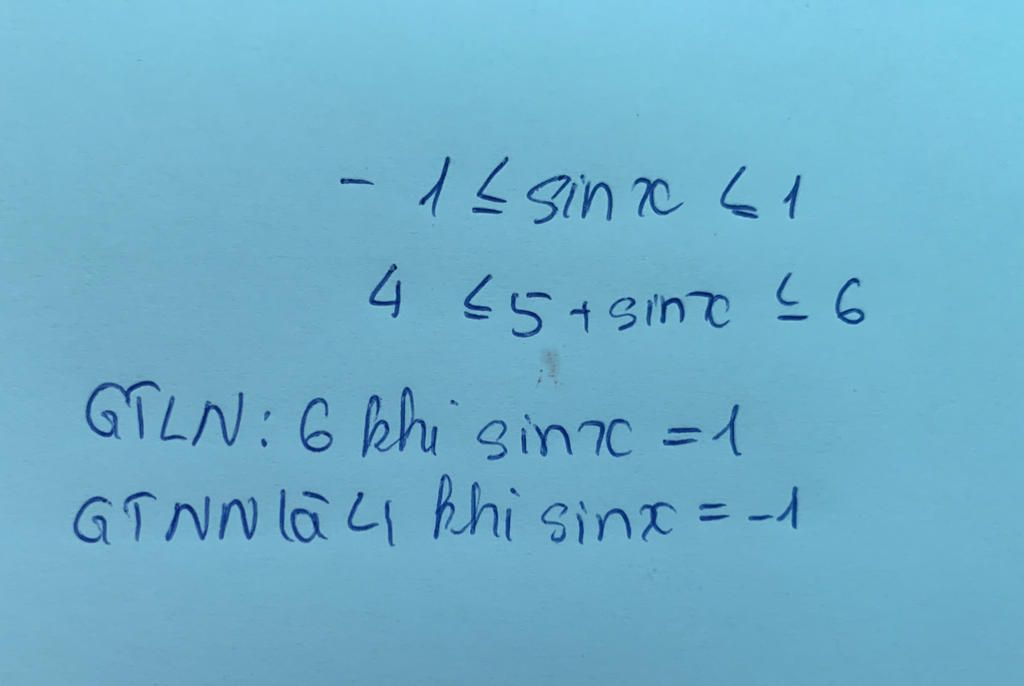 - 1 ≤ sin x ≤ 1
4 ≤ 5 + sin x ≤ 6
GTLN: 6 khi sin x = 1
GTNN là 4 khi sin x = -1